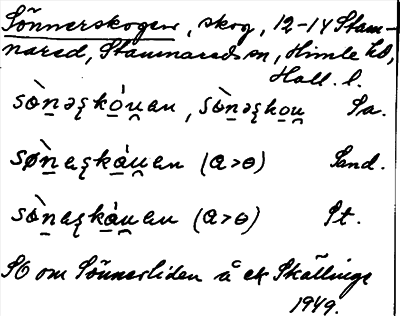 Sönnerskogen, skog, 12-14 Stam-
nared, Stamnareds sn, Himle hd,
Hall. l.
sɵ̀n̠əşkó̠u̯ən, sɵ̀n̠əşko̠u̯ Sa.
sø̀n̠eşká̠u̯en (a>ɵ) Sand.
sɵ̀n̠eşká̠u̯en (a>ɵ) St.
SO om Sönnerliden å ek Skällinge
1949.